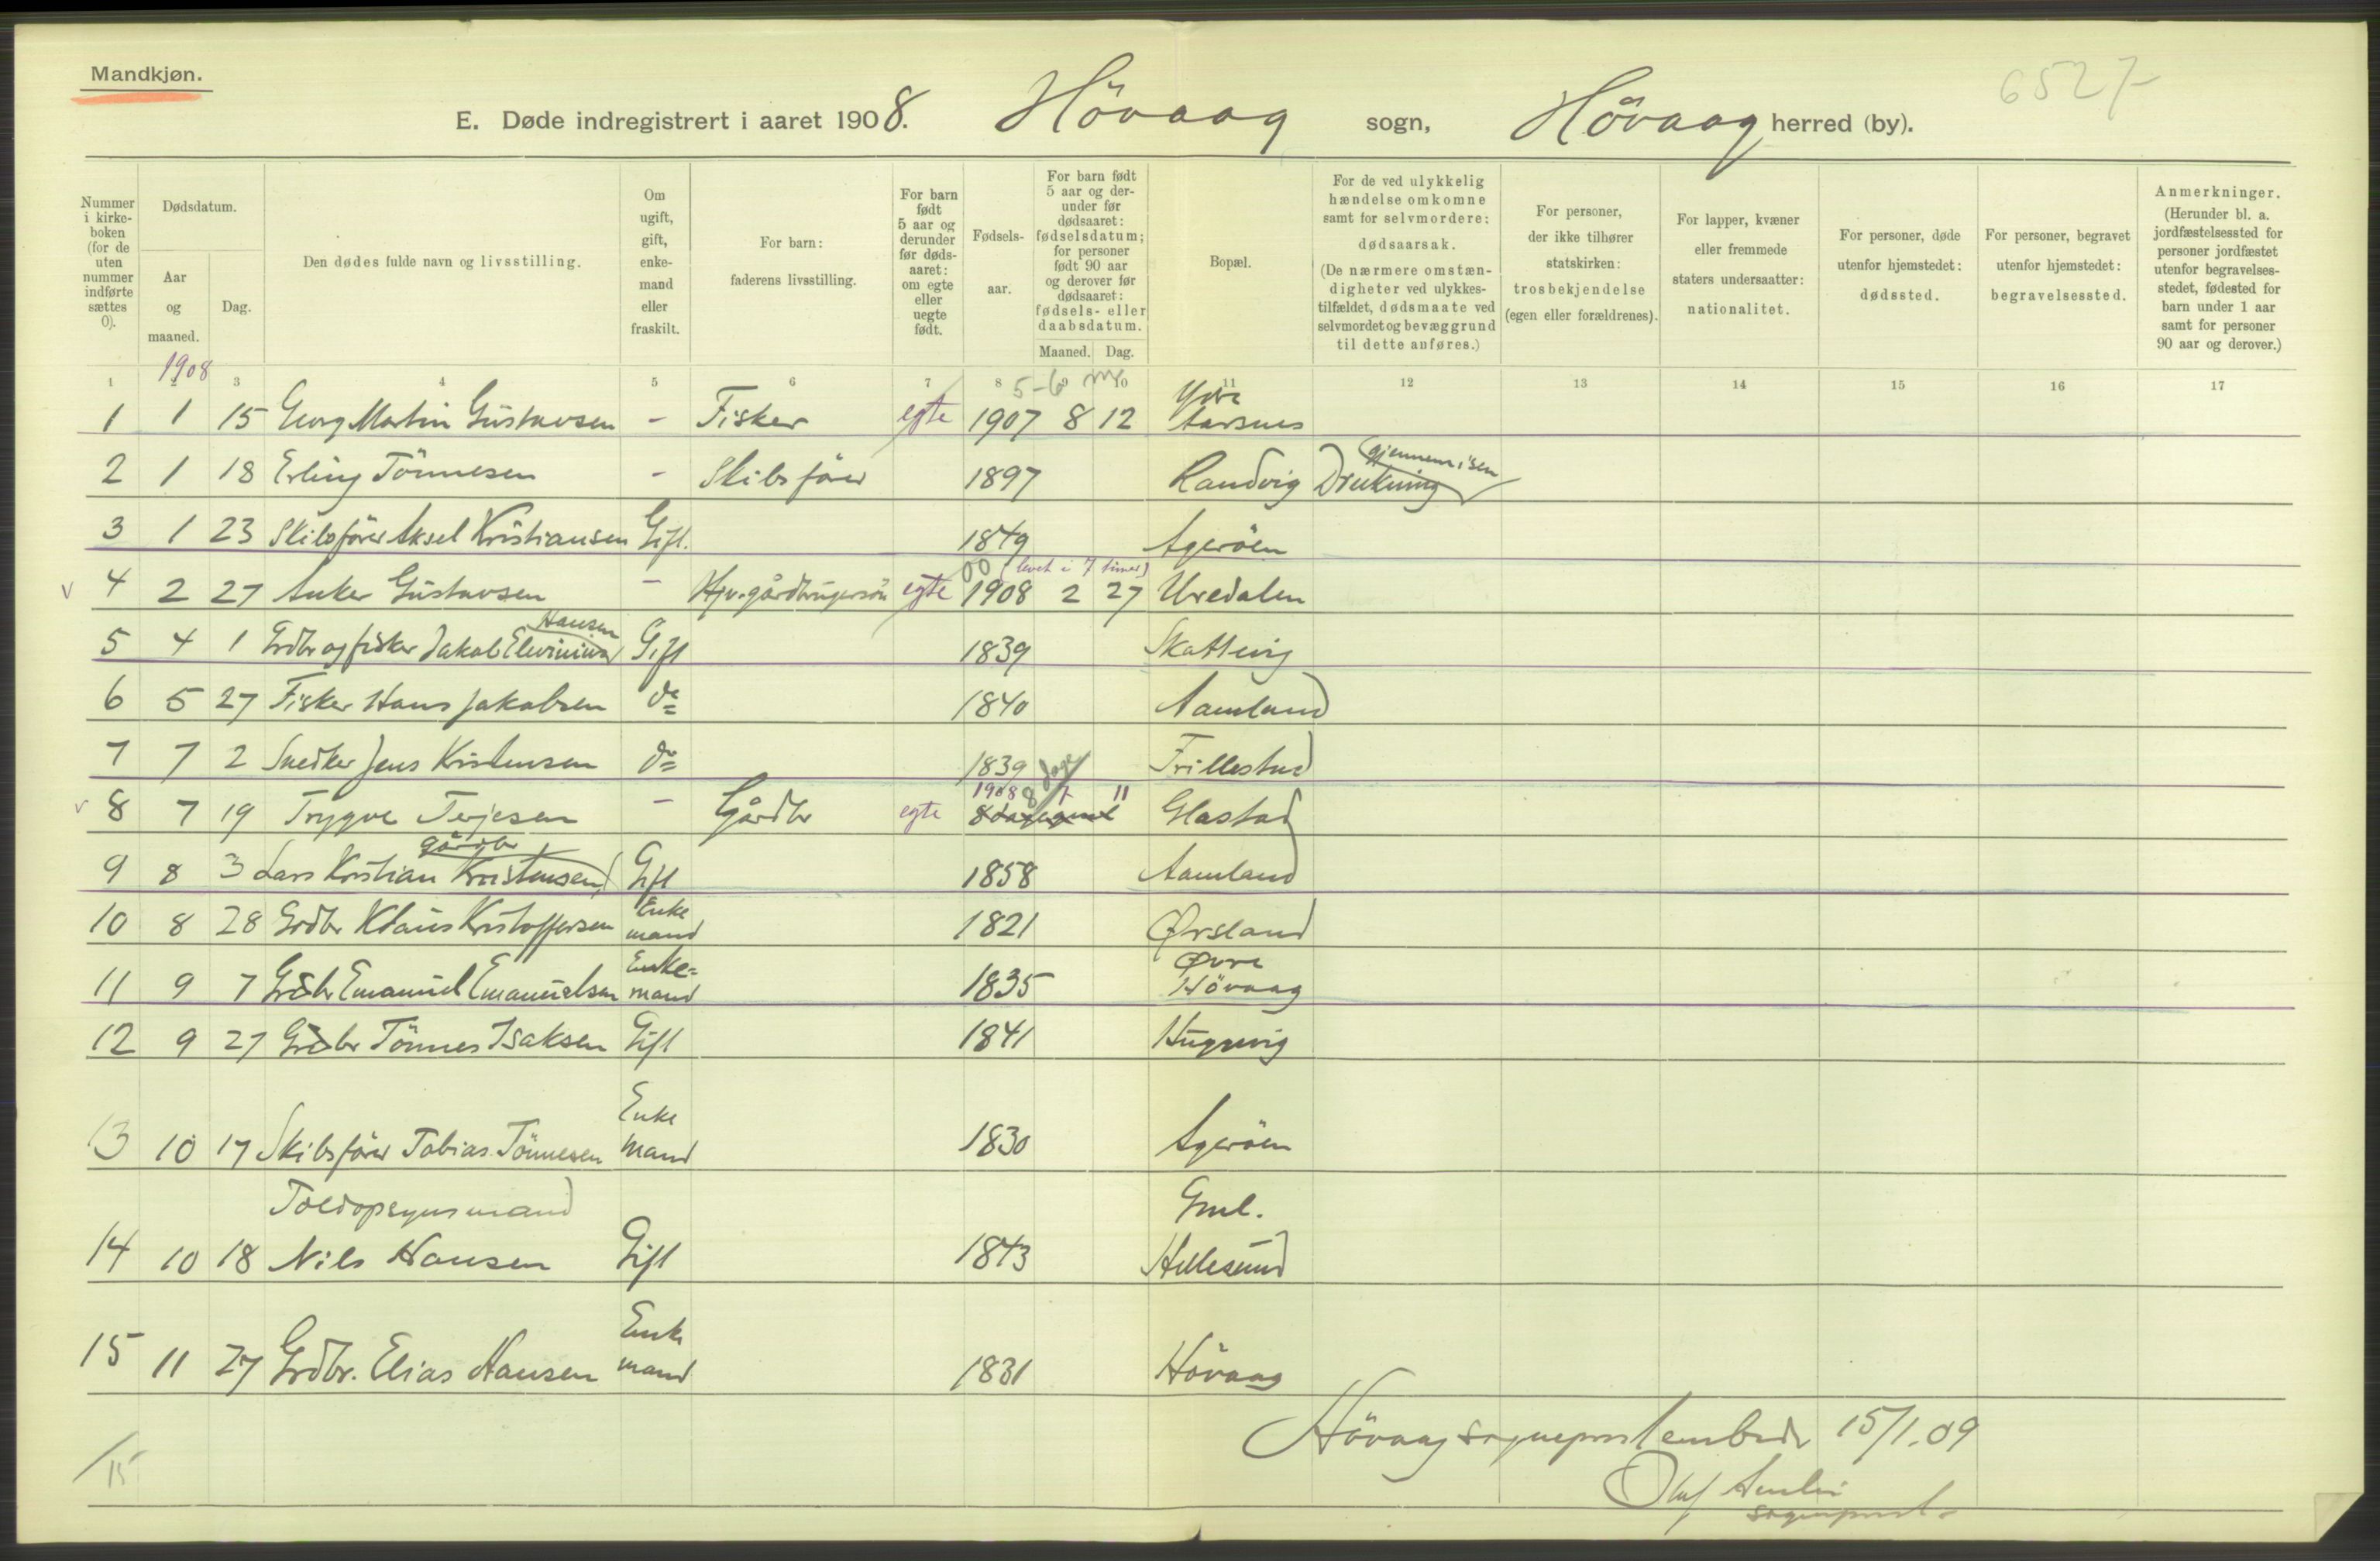 Mandkjøn.
6527
E. Døde indregistrert i aaret 1908. Hövaag sogn, Hövaag herred (by).
Nummer i kirke-boken (for de uten nummer indførte sættes 0).
Dødsdatum.
Aar og maaned.
Dag.
Den dødes fulde navn og livsstilling.
Om ugift, gift, enke-mand eller fraskilt.
For barn: faderens livsstilling.
For barn født 5 aar og derunder før døds-aaret: om egte eller uegte født.
Fødsels-aar.
For barn født 5 aar og der-under før dødsaaret: fødselsdatum; for personer født 90 aar og derover før dødsaaret: fødsels- eller daabsdatum.
Maaned. Dag.
Bopæl.
For de ved ulykkelig hændelse omkomne samt for selvmordere: dødsaarsak. (De nærmere omstæn-digheter ved ulykkes-tilfældet, dødsmaate ved selvmordet og bevæggrund til dette anføres.)
For personer, der ikke tilhører statskirken: trosbekjendelse (egen eller forældrenes).
For lapper, kvæner eller fremmede staters undersaatter: nationalitet.
For personer, døde utenfor hjemstedet: dødssted.
For personer, begravet utenfor hjemstedet: begravelsessted.
Anmerkninger. (Herunder bl. a. jordfæstelsessted for personer jordfæstet utenfor begravelses-stedet, fødested for barn under 1 aar samt for personer 90 aar og derover.)
1908
1 2 3 4 5 6 7 8 9 10 11 12 13 14 15 16 17
5-6 m
1 1 15 Georg Martin Gustavsen - Fisker egte 1907 8 12 Ydre Aarsnes
2 1 18 Erling Tönnesen - Skibsförer 1897 Randvig Drukning (gjennem isen
3 1 23 Skibsförer Aksel Kristiansen Gift. 1849 Ageröen
00 (levet i 7 timer)
v 4 2 27 Anker Gustavsen - egte 1908 2 27 Uredalen
5 4 1 Grdbr og fisker Jakob Hansen Gift 1839 Skottevig
6 5 27 Fisker Hans Jakobsen do 1840 Aamland
7 7 2 Snedker Jens Kristensen do 1839 Trillestad
8 dage
v 8 7 19 Trygve Terjesen - Gårdbr egte 1908 7 11 Glastad
9 8 3 Lars Kristian Kristensen gårdbr Gift 1858 Aamland
10 8 28 Grdbr Klaus Kristoffersen Enke mand 1821 Ørsland
11 9 7 Grdbr Emanuel Emanuelsen Enke-mand 1835 Øvre Hövaag
12 9 27 Grdbr Tönnes Isaksen Gift 1841
13 10 17 Skibsförer Tobias Tönnesen Enke mand 1830 Ageröen
Toldopsynsmand
14 10 18 Nils Hansen Gift 1843 Gml. Hellesund
15 11 27 Grdbr. Elias Hansen Enke mand 1831 Hövaag
Hövaag sogneprestembede 15/1.09
15 Oluf
sogneprest